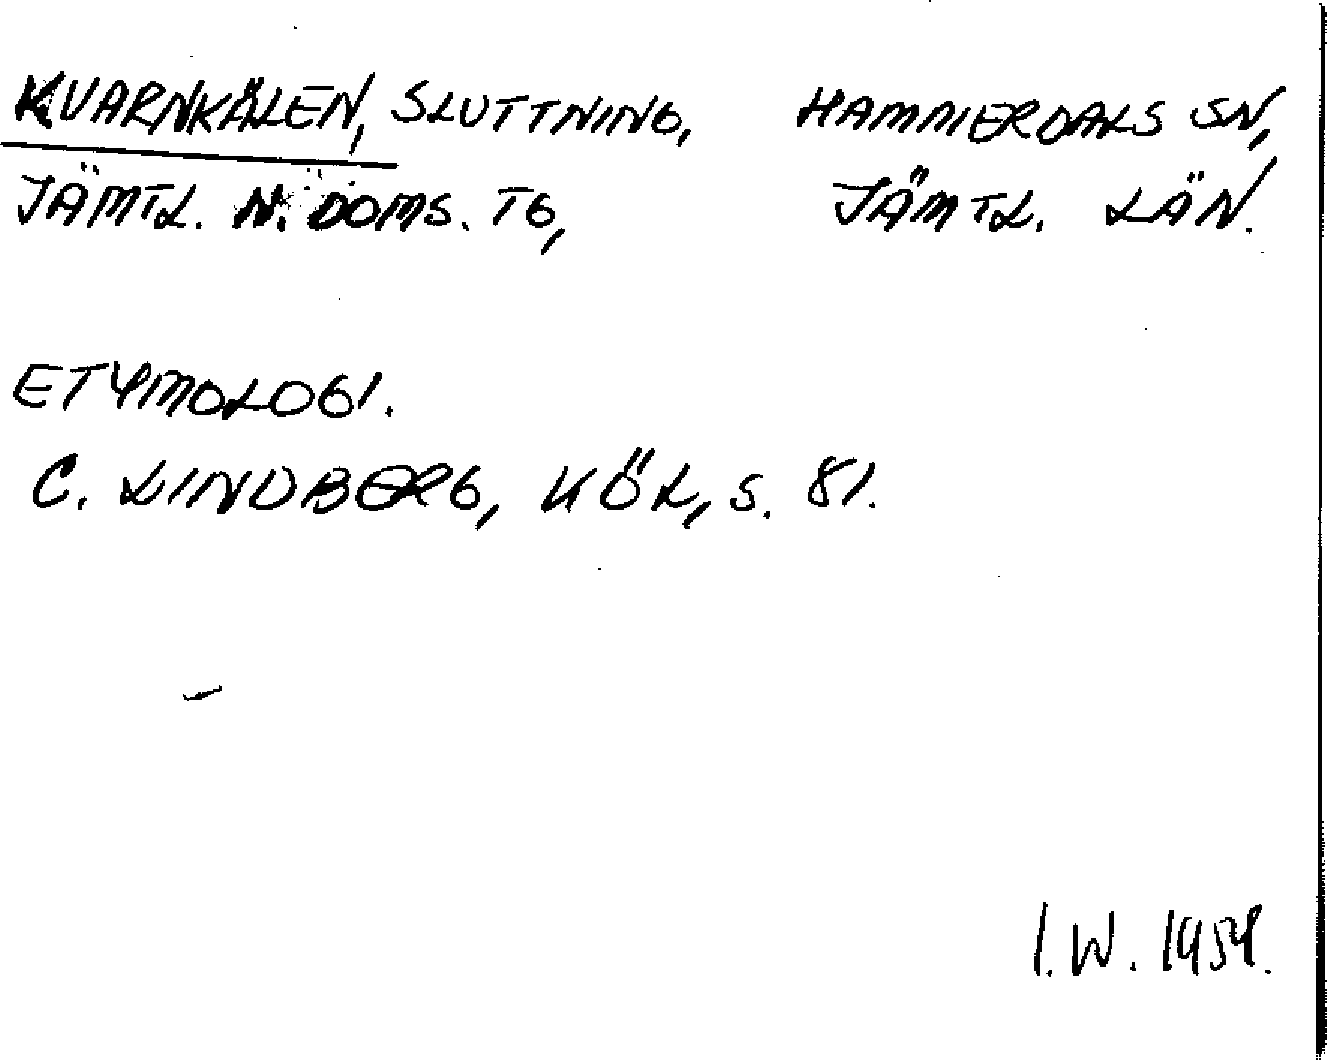 KVARNKÄLEN, SLUTTNING, HAMMERDALS SN,
JÄMTL. N. DOMS. TG, JÄMTL. LÄN.
ETYMOLOGI.
C. LINDBERG, KÖL, S. 81.
I.W. 1954.